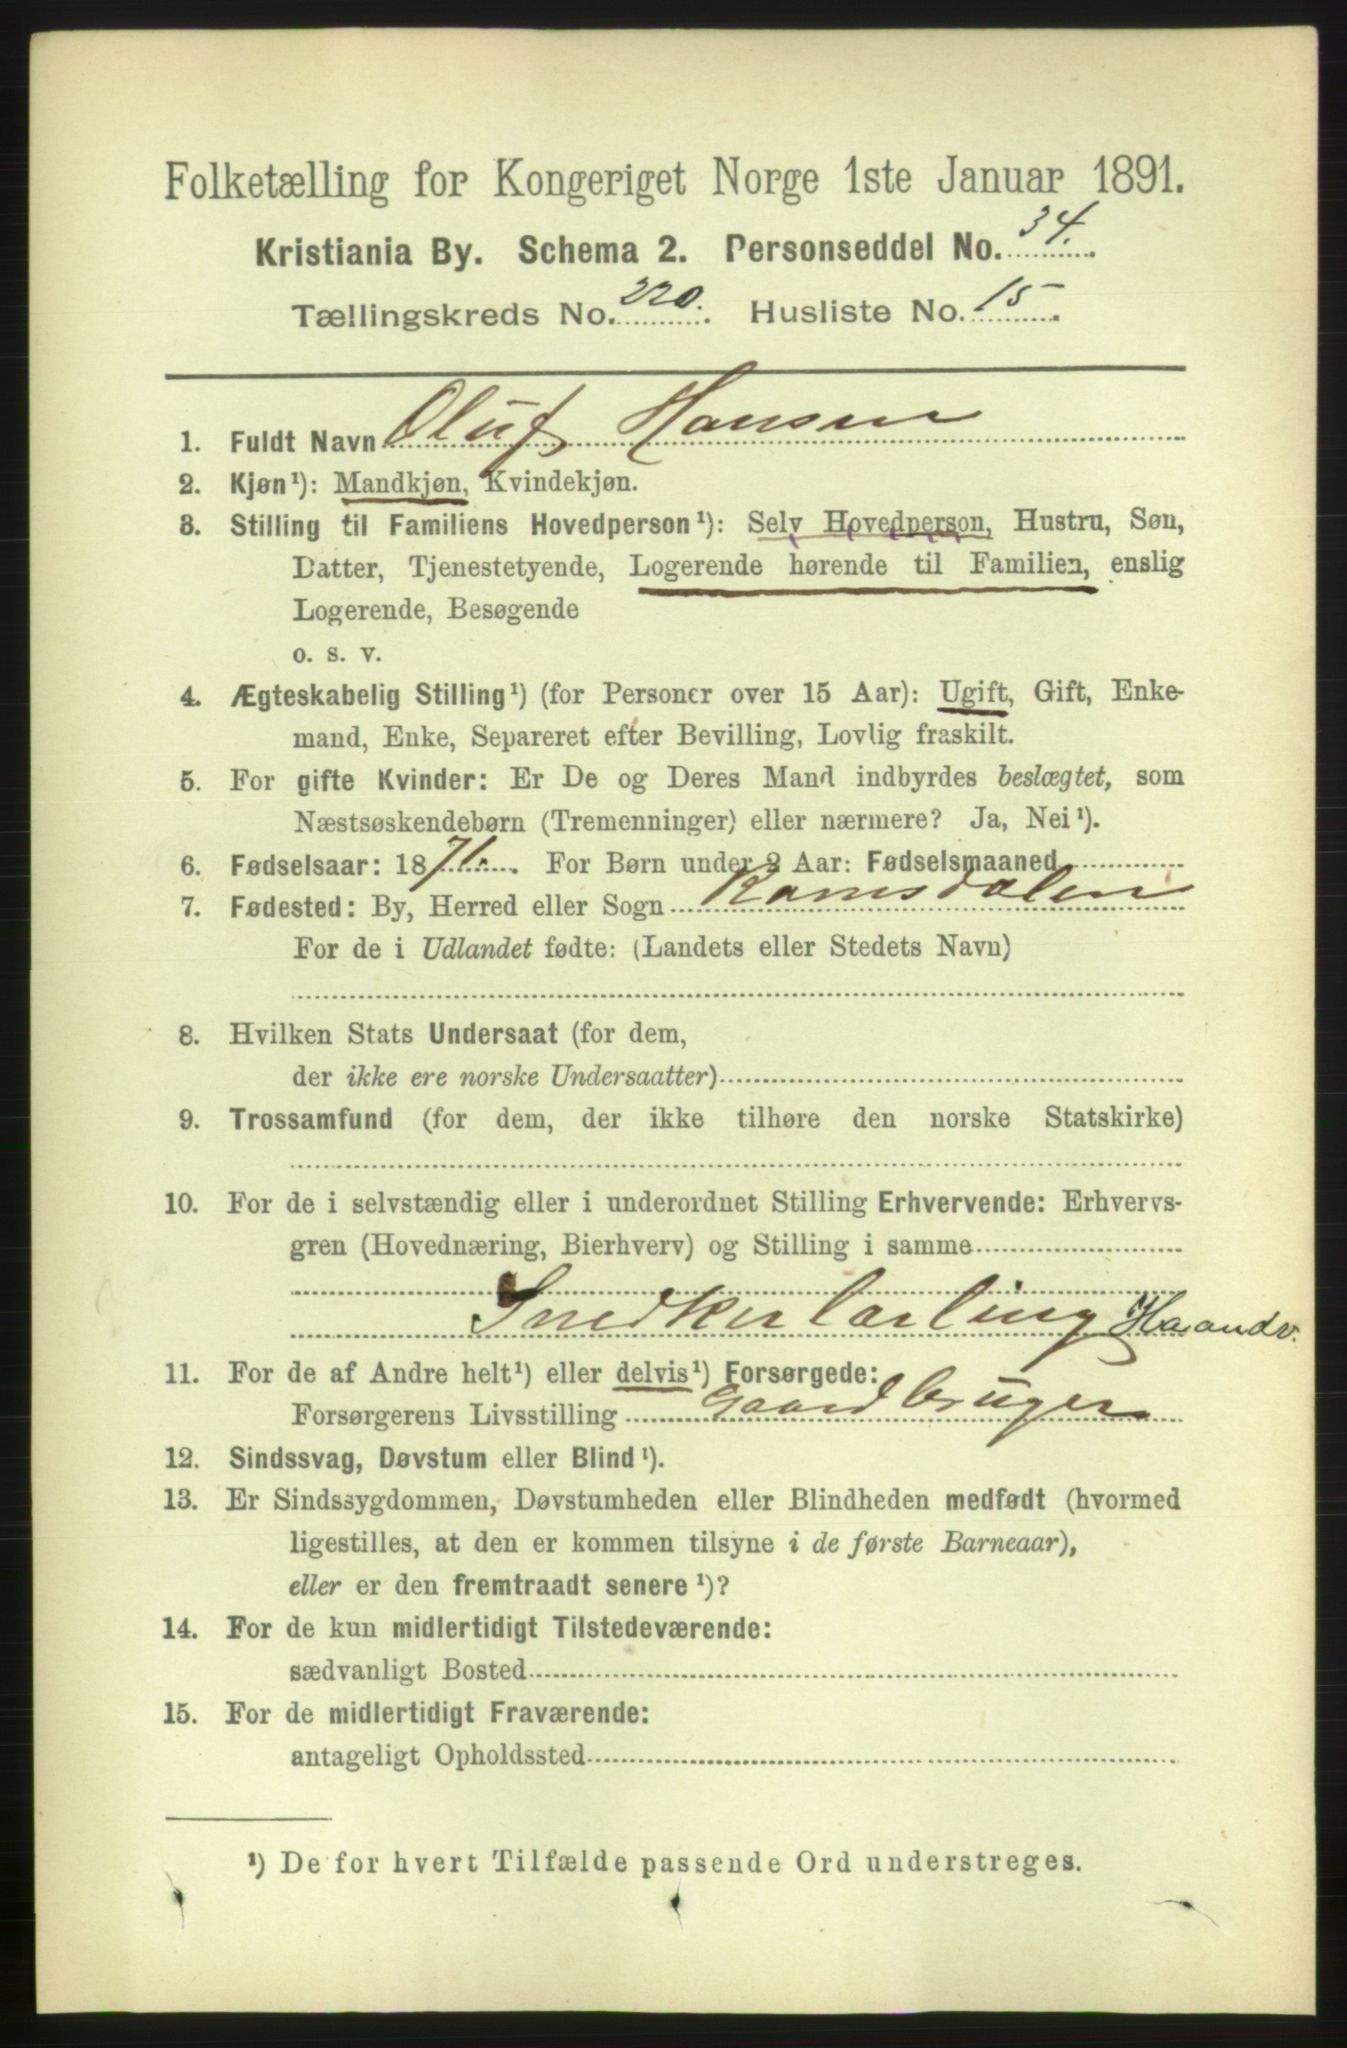 Folketælling for Kongeriget Norge 1ste Januar 1891.
Kristiania By. Schema 2. Personseddel No. 34.
Tællingskreds No. 220. Husliste No. 15
1. Fuldt Navn Oluf Hansen
2. Kjøn¹): Mandkjøn, Kvindekjøn.
3. Stilling til Familiens Hovedperson¹): Selv Hovedperson, Hustru, Søn,
Datter, Tjenestetyende, Logerende hørende til Familien, enslig
Logerende, Besøgende
o. s. v.
4. Ægteskabelig Stilling¹) (for Personer over 15 Aar): Ugift, Gift, Enke-
mand, Enke, Separeret efter Bevilling, Lovlig fraskilt.
5. For gifte Kvinder: Er De og Deres Mand indbyrdes beslægtet, som
Næstsøskendebørn (Tremenninger) eller nærmere? Ja, Nei¹).
6. Fødselsaar: 1871. For Børn under 2 Aar: Fødselsmaaned
7. Fødested: By, Herred eller Sogn Ramsdalen
For de i Udlandet fødte: (Landets eller Stedets Navn)
8. Hvilken Stats Undersaat (for dem,
der ikke ere norske Undersaatter)
9. Trossamfund (for dem, der ikke tilhøre den norske Statskirke)
10. For de i selvstændig eller i underordnet Stilling Erhvervende: Erhvervs-
gren (Hovednæring, Bierhverv) og Stilling i samme
Snedkerlærling Haandv.
11. For de af Andre helt¹) eller delvis¹) Forsørgede:
Forsørgerens Livsstilling Gaardbruger
12. Sindssvag, Døvstum eller Blind¹).
13. Er Sindssygdommen, Døvstumheden eller Blindheden medfødt (hvormed
ligestilles, at den er kommen tilsyne i de første Barneaar),
eller er den fremtraadt senere¹)?
14. For de kun midlertidigt Tilstedeværende:
sædvanligt Bosted
15. For de midlertidigt Fraværende:
antageligt Opholdssted
¹) De for hvert Tilfælde passende Ord understreges.